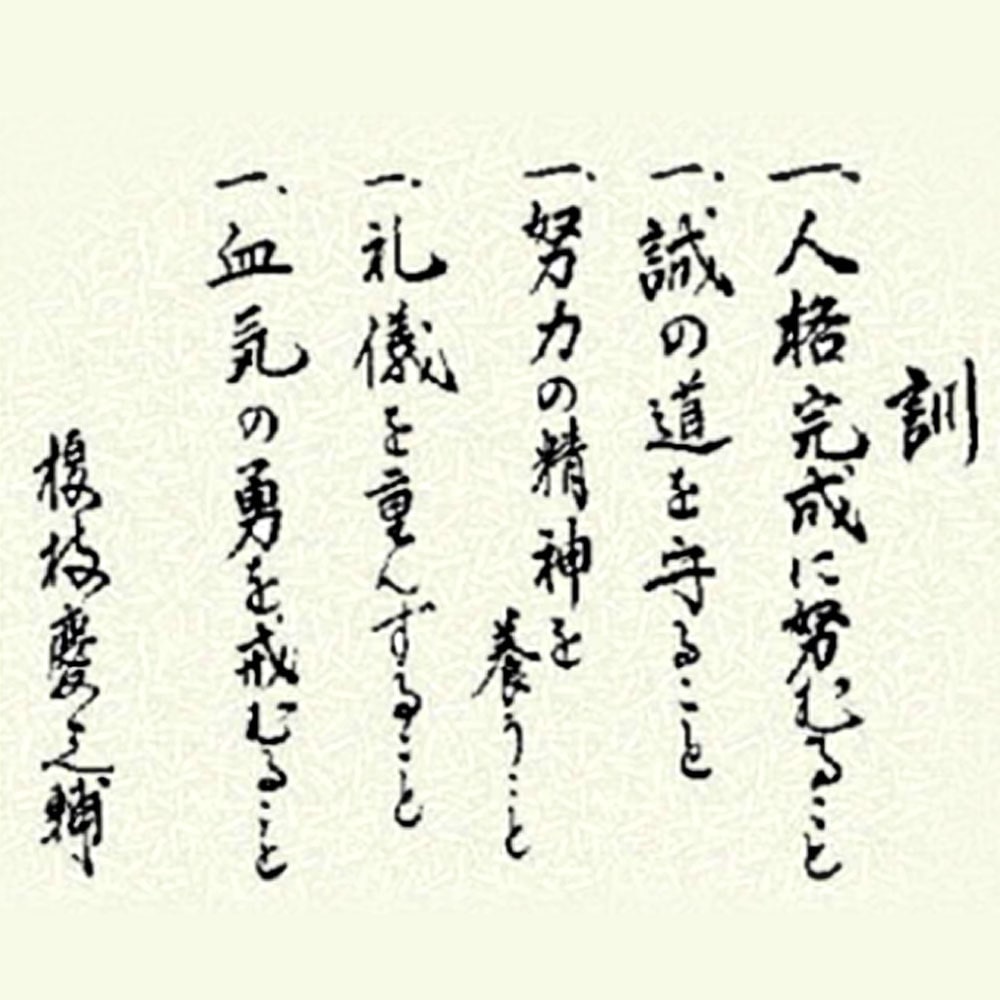 訓
一、人格完成に努むること
一、誠の道を守ること
一、努力の精神を
養うこと
一、礼儀を重んずること
一、血気の勇を戒むること
榎枝慶之輔